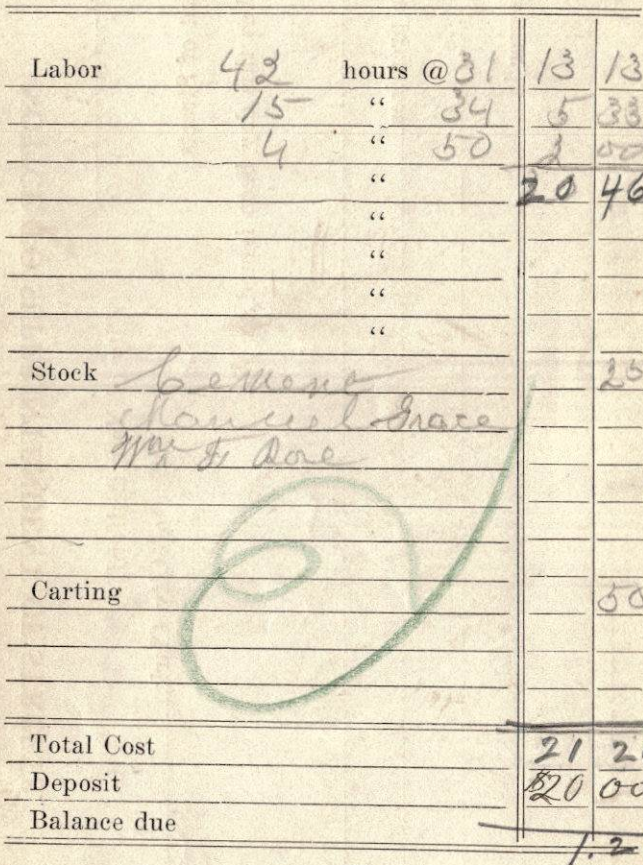 Labor 42 hours @ 31 13 13
15 “ 34 5 33
4 “ 50 2 00
“ 20 46
“
“
“
“
Stock Cement 25
Manuel Grace
Wm
Carting 50
Total Cost 21 2
Deposit $20 00
Balance due
1.2